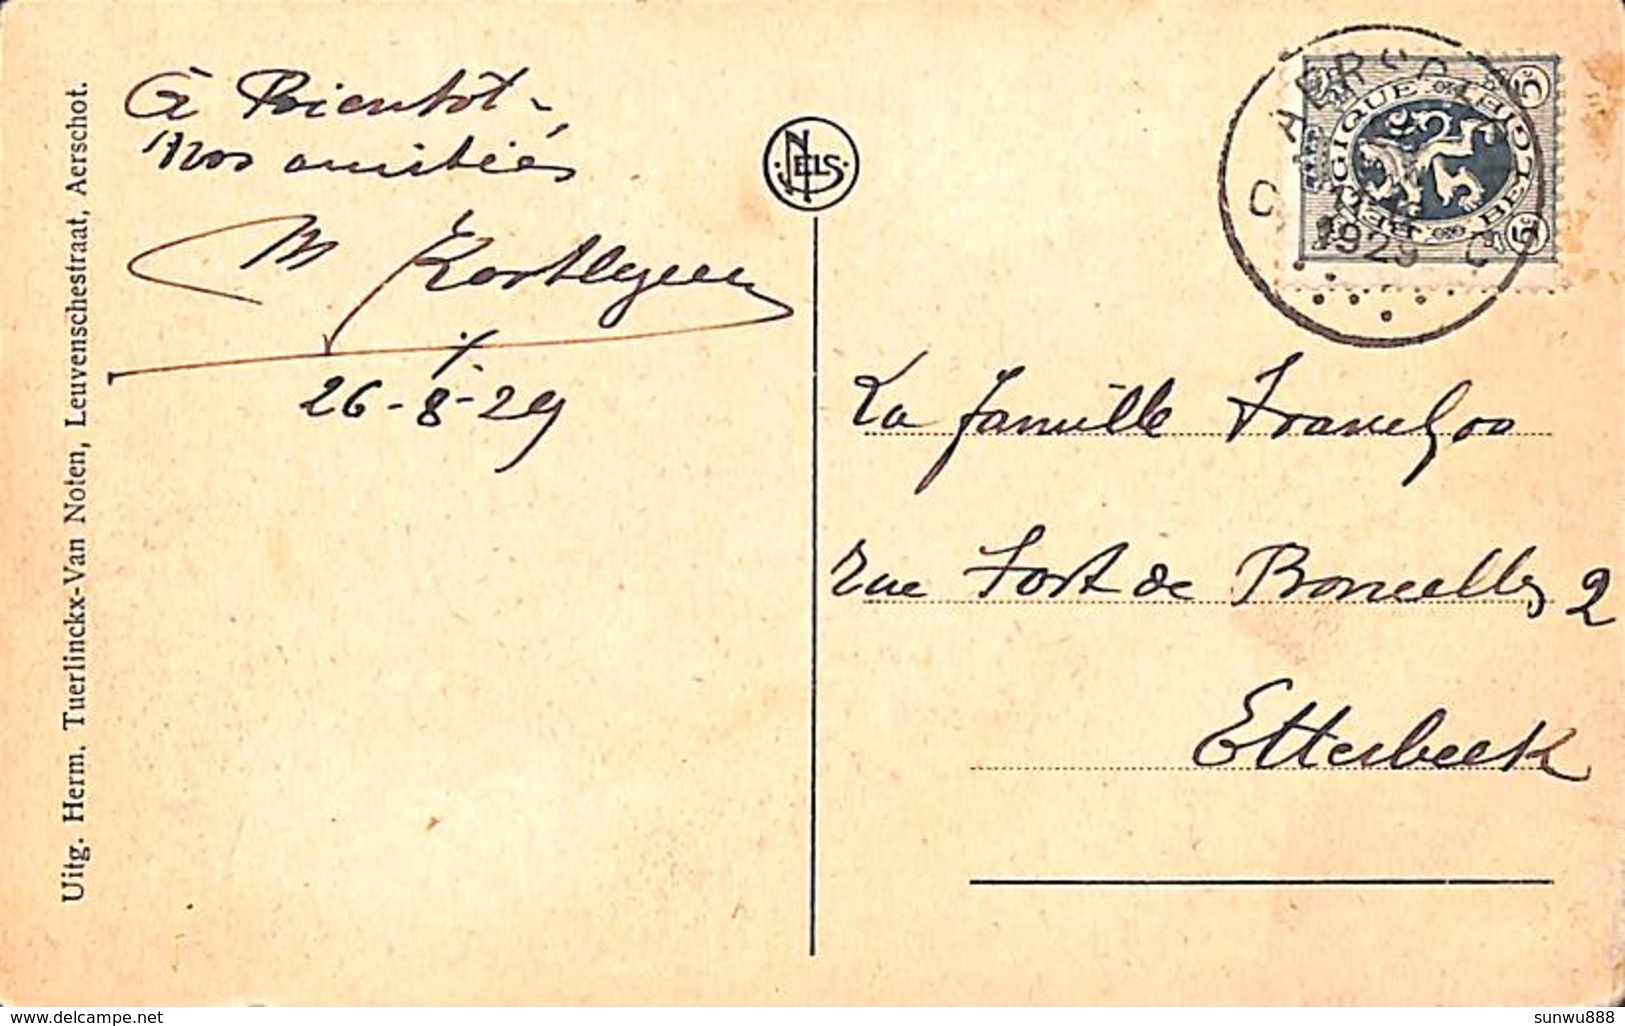 À Bientôt -,
nos amitiés
M
26-8-29
Uitg. Herm. Tuerlinckx-Van Noten, Leuvenschestraat, Aerschot.
NELS.
BELGIQUE BELGIË
5c 5c
1929
La famille
rue Fort de Boncelles 2
Etterbeek
www.delcampe.net
sunwu888